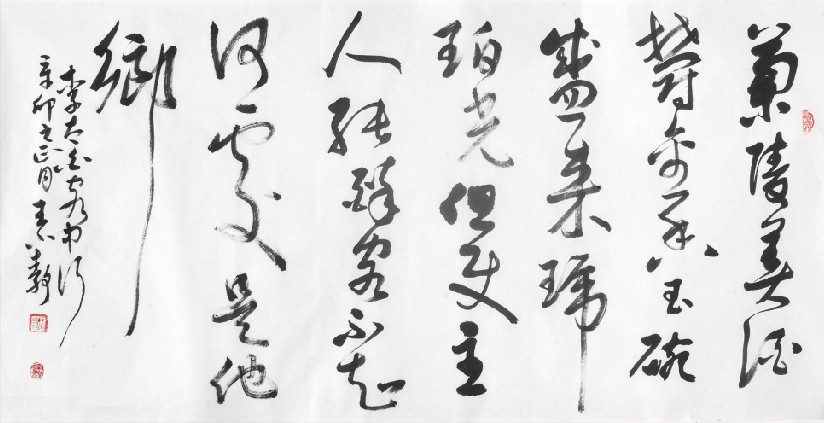 蘭陵美酒
鬱金香玉碗
盛來琥
珀光但使主
人能醉客不知
何處是他
鄉
李太白客中行
辛卯之正月